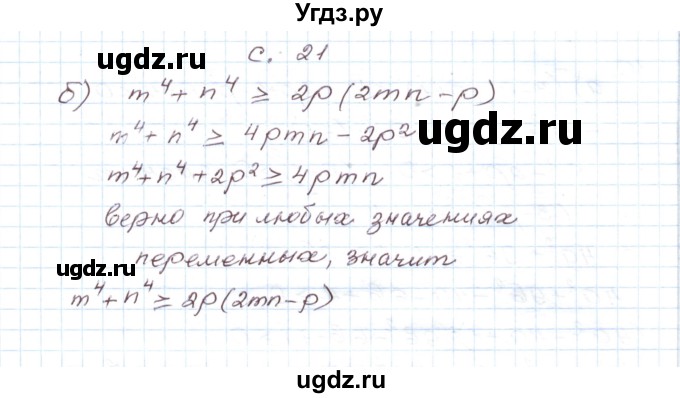 Угдз.ру
ugdz.ru
С. 21
б) m⁴+n⁴ ≥ 2p(2mn-p)
m⁴+n⁴ ≥ 4pmn - 2p²
ugdz.ru
m⁴+n⁴+2p² ≥ 4pmn
верно при любых значениях
переменных, значит
ugdz.ru
m⁴+n⁴ ≥ 2p(2mn-p)
ugdz.ru
ugdz.ru